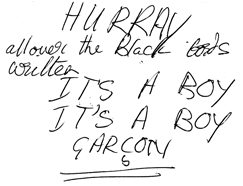 HURRAY
all over the Black bords
written
IT'S A BOY
IT'S A BOY
GARCON